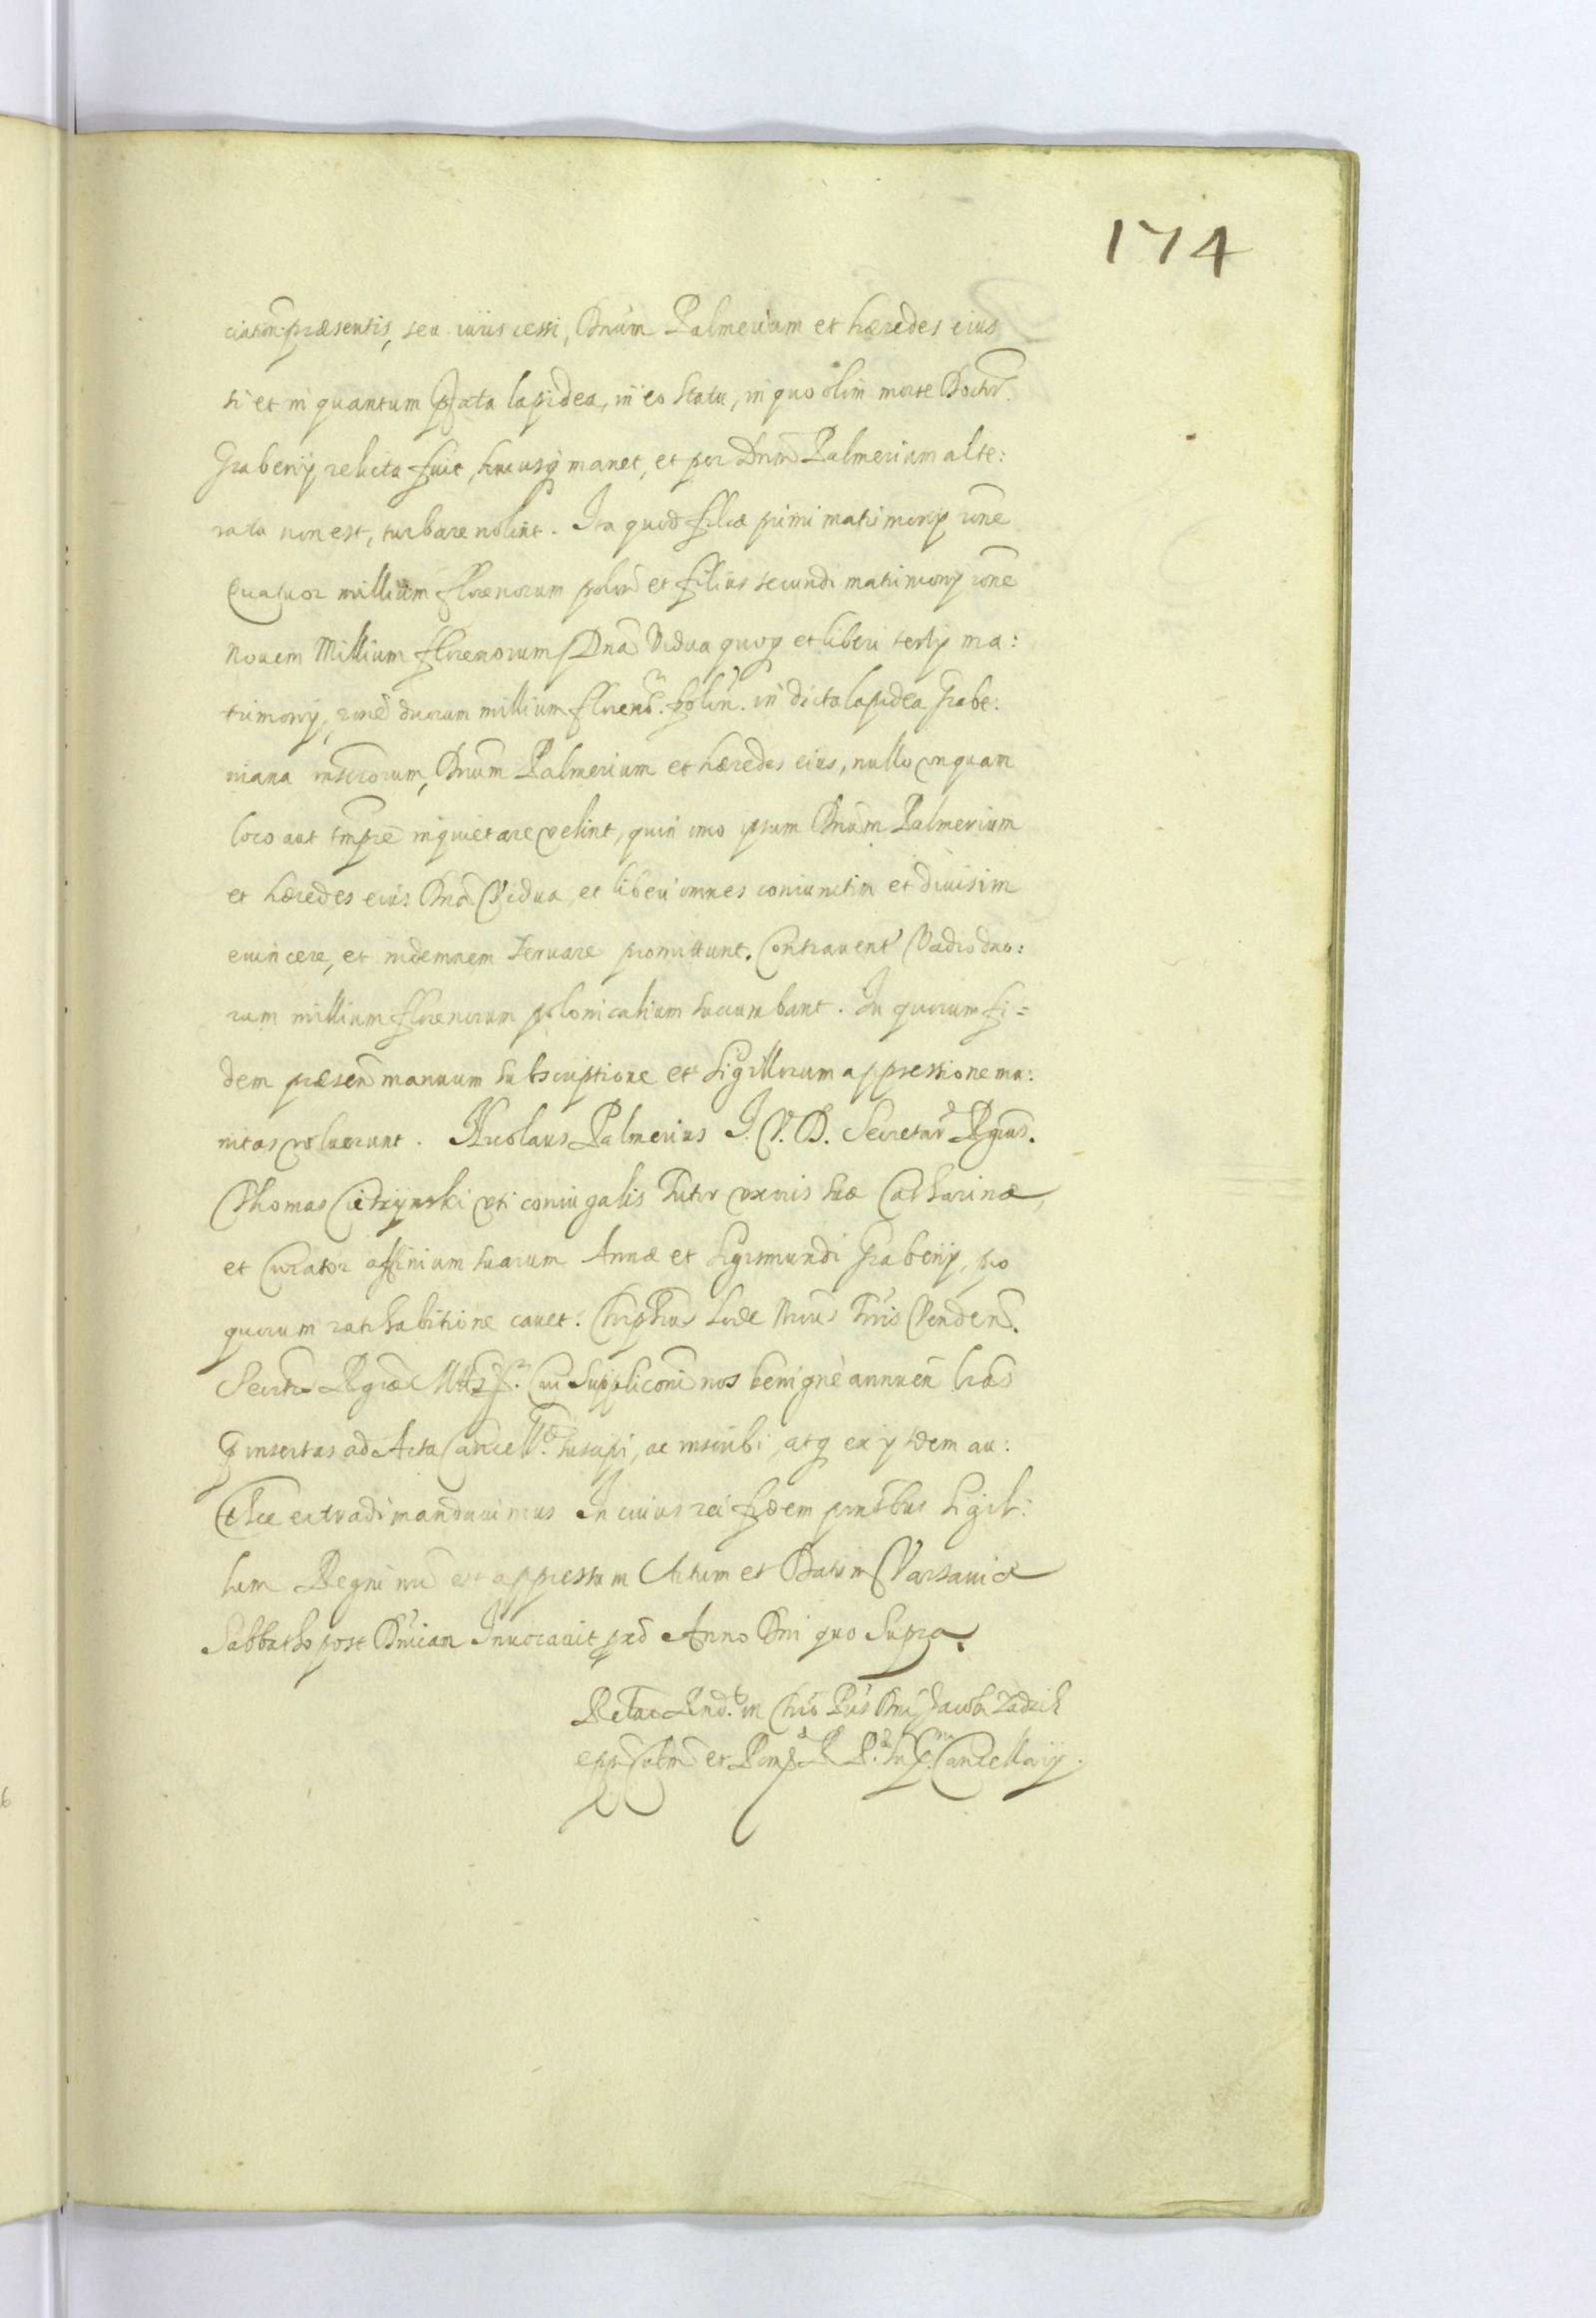 174
ciation: præsentis, seu iuris cessi, Dnum Palmerium et hæredes eius
si et in quantum pfata lapidea, in eo statu, in quo olim morte Doctor.
Grabenij relicta fuit, hucusq manet, et per Dnm Palmerium alte:
rata non est, turbare nolint. Ita quod filiæ primi matrimonij rone
Quatuor millium florenorum polon et filius secundi matrimonij rone
Nouem Millium florenorum Dna Vidua quoq et liberi tertij ma:
trimonij, rone duorum millium floreno. polon. in dicta lapidea Grabe:
niana inscrorum, Dnum Palmerium et hæredes eius, nullo vnquam
loco aut tmpre inquietare velint, quin imo ipsum Dnum Palmerium
et hæredes eius Dna Vidua et liberi omnes coniunctim et diuisim
euincere, et indemnem seruare promittunt. Contrauent Vadio duo:
rum millium florenorum polonicalium succumbant. In quorum fi=
dem præsen manuum subscriptione et sigillorum appressione mu:
nitas voluerunt. Nicolaus Palmerius I. V. D. Secretar Rgius.
Thomas uti coniugalis Tutor uxoris suæ Catharinæ,
et Curator affinium suarum Annæ et Sigismundi Grabenij, pro
quorum ratihabitione cauet. Notarius Tris Venden.
Secrtr Rgiæ Mttis. Cui Suppliconi nos benigne annuen lras
pinsertas ad Acta Cancell. suscipi, ac inscribi, atq ex ijsdem au:
thce extradi mandauimus In cuius rei fidem pntibus sigil:
lum Regni nri est appressum Actum et Datum Varsauiæ
Sabbatho post Dnicam Inuocauit pxd Anno Dni quo Supra.
Relao Rnd. in Chro Pris Dni Jacobi Zadzik
eppi Culmen et Pomes R. P. Supr. Cancellarij.